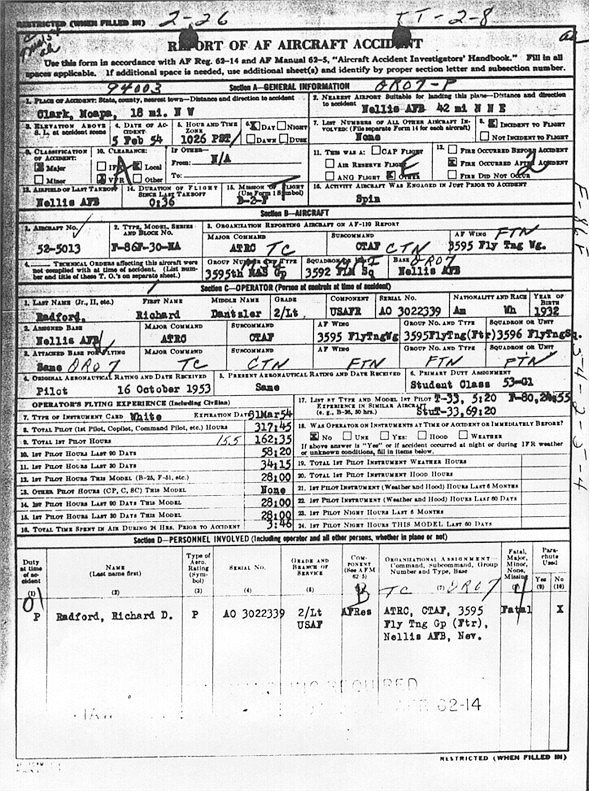 RESTRICTED (WHEN FILLED IN) 2-26 2-8
REPORT OF AF AIRCRAFT ACCIDENT
Use this form in accordance with AF Reg. 62-14 and AF Manual 62-5, "Aircraft Accident Investigators' Handbook." Fill in all
spaces applicable. If additional space is needed, use additional sheet(s) and identify by proper section letter and subsection number.
94003 Section A—GENERAL INFORMATION DR07-P
1. PLACE OF ACCIDENT: State, county, nearest town—Distance and direction to accident
Clark, Moapa, 18 mi. N W
2. NEAREST AIRPORT Suitable for landing this plane—Distance and direction to accident
Nellis AFB 42 mi N N E
3. ELEVATION ABOVE S. L. at accident scene
4. DATE OF ACCIDENT
5 Feb 54
5. HOUR AND TIME ZONE
1026 PST
6. Day Night
Dawn Dusk
7. LIST NUMBERS OF ALL OTHER AIRCRAFT INVOLVED: (File separate Form 14 for each aircraft)
None
8. INCIDENT TO FLIGHT
NOT INCIDENT TO FLIGHT
9. CLASSIFICATION OF ACCIDENT:
Major
Minor
10. CLEARANCE:
IFR Local
VFR Other
IF OTHER—
From: N/A
To:
11. THIS WAS A: CAP FLIGHT
AIR RESERVE FLIGHT
ANG FLIGHT OTHER
12. FIRE OCCURRED BEFORE ACCIDENT
FIRE OCCURRED AFTER ACCIDENT
FIRE DID NOT OCCUR
13. AIRFIELD OF LAST TAKEOFF
Nellis AFB
14. DURATION OF FLIGHT SINCE LAST TAKEOFF
0:36
15. MISSION OF FLIGHT (Use Form 1 Symbol)
16. ACTIVITY AIRCRAFT WAS ENGAGED IN JUST PRIOR TO ACCIDENT
Spin
Section B—AIRCRAFT
1. AIRCRAFT NO.
52-5013
2. TYPE, MODEL, SERIES AND BLOCK NO.
F-86F-30-NA
3. ORGANIZATION REPORTING AIRCRAFT ON AF-110 REPORT
MAJOR COMMAND SUBCOMMAND AF WING FTN
ATRC TC CTAF CTN 3595 Fly Tng Wg.
4. TECHNICAL ORDERS affecting this aircraft were not complied with at time of accident. (List number and title of these T. O.'s on separate sheet.)
GROUP NUMBER AND TYPE SQUADRON OR UNIT BASE DR07
3595th M&S Gp 3592 FLM Sq Nellis AFB
Section C—OPERATOR (Person at controls at time of accident)
1. LAST NAME (Jr., II, etc.) FIRST NAME MIDDLE NAME GRADE COMPONENT SERIAL NO. NATIONALITY AND RACE YEAR OF BIRTH
Radford, Richard Dantsler 2/Lt USAFR AO 3022339 Am Wh 1932
2. ASSIGNED BASE MAJOR COMMAND SUBCOMMAND AF WING GROUP NO. AND TYPE SQUADRON OR UNIT
Nellis AFB ATRC CTAF 3595 FlyTngWg 3595FlyTng(Ftr) 3596 FlyTngSq.
3. ATTACHED BASE FOR FLYING MAJOR COMMAND SUBCOMMAND AF WING GROUP NO. AND TYPE SQUADRON OR UNIT
Same DR07 TC CTN FTN FTN FTN
4. ORIGINAL AERONAUTICAL RATING AND DATE RECEIVED
Pilot 16 October 1953
5. PRESENT AERONAUTICAL RATING AND DATE RECEIVED
Same
6. PRIMARY DUTY ASSIGNMENT
Student Class 53-G1
OPERATOR'S FLYING EXPERIENCE (Including Civilian)
7. TYPE OF INSTRUMENT CARD White EXPIRATION DATE 31Mar54
8. TOTAL PILOT (1st Pilot, Copilot, Command Pilot, etc.) HOURS 317:45
9. TOTAL 1ST PILOT HOURS 155 162:35
10. 1ST PILOT HOURS LAST 90 DAYS 58:20
11. 1ST PILOT HOURS LAST 30 DAYS 34:15
12. 1ST PILOT HOURS THIS MODEL (B-25, F-51, etc.) 28:00
13. OTHER PILOT HOURS (CP, C, SC) THIS MODEL None
14. 1ST PILOT HOURS LAST 90 DAYS THIS MODEL 28:00
15. 1ST PILOT HOURS LAST 30 DAYS THIS MODEL 28:00
16. TOTAL TIME SPENT IN AIR DURING 24 HRS. PRIOR TO ACCIDENT 3:46
17. LIST BY TYPE AND MODEL 1ST PILOT EXPERIENCE IN SIMILAR AIRCRAFT (e. g., B-36, 50 hrs.)
T-33, 5:20 F-80,24:55
StuT-33,69:20
18. WAS OPERATOR ON INSTRUMENTS AT TIME OF ACCIDENT OR IMMEDIATELY BEFORE?
No Unk Yes: Hood Weather
If above answer is "Yes" or if accident occurred at night or during IFR weather or unknown conditions, fill in items below.
19. TOTAL 1ST PILOT INSTRUMENT WEATHER HOURS
20. TOTAL 1ST PILOT INSTRUMENT HOOD HOURS
21. 1ST PILOT INSTRUMENT (Weather and Hood) HOURS LAST 6 MONTHS
22. 1ST PILOT INSTRUMENT (Weather and Hood) HOURS LAST 60 DAYS
23. 1ST PILOT NIGHT HOURS LAST 6 MONTHS
24. 1ST PILOT NIGHT HOURS THIS MODEL LAST 60 DAYS
Section D—PERSONNEL INVOLVED (Including operator and all other persons, whether in plane or not)
Duty at time of accident (1)
NAME (Last name first) (2)
Type of Aero. Rating (Symbol) (3)
SERIAL NO. (4)
GRADE AND BRANCH OF SERVICE (5)
COMPONENT (See AFM 62-5) (6)
ORGANIZATIONAL ASSIGNMENT Command, Subcommand, Group Number and Type, Base (7) TC DR07
Fatal, Major, Minor, None, Missing (8)
Parachute Used Yes (9) No (10)
P Radford, Richard D. P AO 3022339 2/Lt USAF AFRes ATRC, CTAF, 3595 Fly Tng Gp (Ftr), Nellis AFB, Nev. Fatal X
REQUIRED
62-14
RESTRICTED (WHEN FILLED IN)
F-86F
54-2-5-4